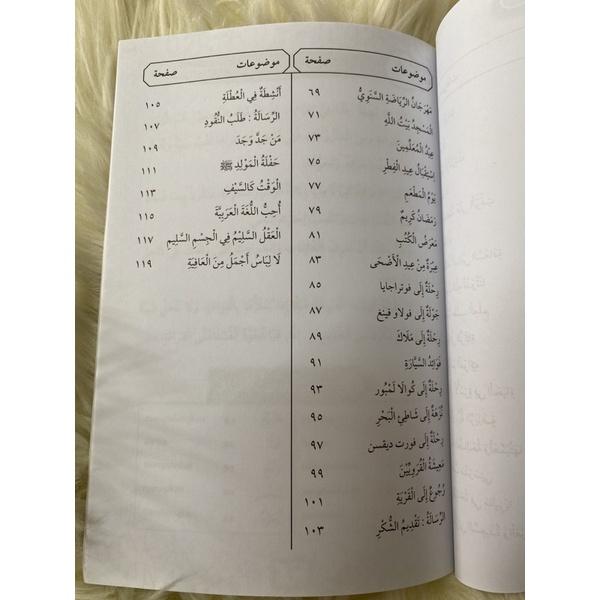 موضوعات صفحة
مَهْرَجَانُ الرِّيَاضَةِ السَّنَوِيُّ ٦٩
الْمَسْجِدُ بَيْتُ اللَّهِ ٧١
عِيدُ الْمُعَلِّمِينَ ٧٣
اِسْتِقْبَالُ عِيدِ الْفِطْرِ ٧٥
يَوْمُ الْمَطْعَمِ ٧٧
رَمَضَانُ كَرِيمٌ ٧٩
مَعْرَضُ الْكُتُبِ ٨١
عِبْرَةٌ مِنْ عِيدِ الْأَضْحَى ٨٣
رِحْلَةٌ إِلَى فوتراجايا ٨٥
جَوْلَةٌ إِلَى فولاو فينغ ٨٧
رِحْلَةٌ إِلَى مَلَاكَ ٨٩
فَوَائِدُ السَّيَّارَةِ ٩١
رِحْلَةٌ إِلَى كُوَالَا لَمْبُور ٩٣
نُزْهَةٌ إِلَى شَاطِئِ الْبَحْرِ ٩٥
رِحْلَةٌ إِلَى فورت ديقسن ٩٧
مَعِيشَةُ الْقُرَوِيِّيْنَ ٩٩
رُجُوعٌ إِلَى الْقَرْيَةِ ١٠١
الرِّسَالَةُ : تَقْدِيمُ الشُّكْرِ ١٠٣
موضوعات صفحة
أَنْشِطَةٌ فِي الْعُطْلَةِ ١٠٥
الرِّسَالَةُ : طَلَبُ النُّقُودِ ١٠٧
مَنْ جَدَّ وَجَدَ ١٠٩
حَفْلَةُ الْمَوْلِدِ ﷺ ١١١
الْوَقْتُ كَالسَّيْفِ ١١٣
أُحِبُّ اللُّغَةَ الْعَرَبِيَّةَ ١١٥
الْعَقْلُ السَّلِيْمُ فِي الْجِسْمِ السَّلِيمِ ١١٧
لَا لِبَاسَ أَجْمَلُ مِنَ الْعَافِيَةِ ١١٩